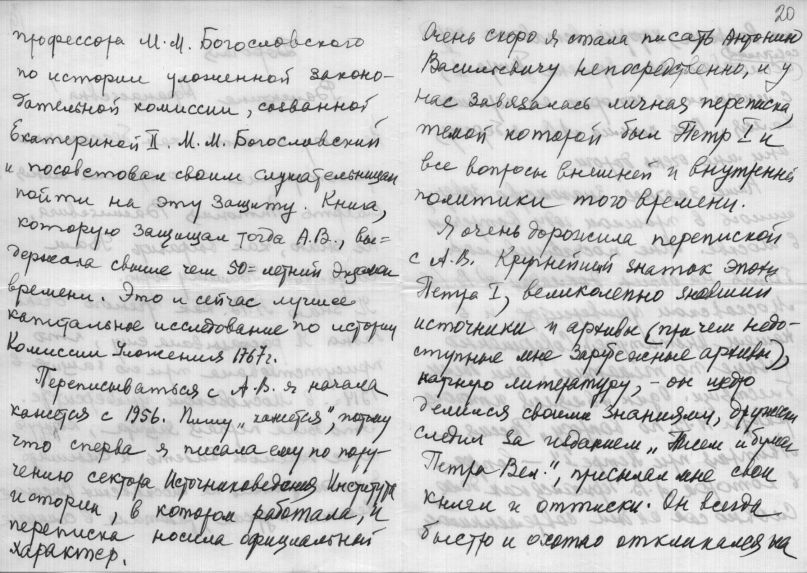 профессора М.М. Богословского
по истории уложенной законо-
дательной комиссии, созванной
Екатериной II. М.М. Богословский
и посоветовал своим слушательницам
пойти на эту защиту. Книга,
которую защищал тогда А.В., вы=
держала свыше чем 50=летний экзамен
времени. Это и сейчас лучшее
капитальное исследование по истории
Комиссии Уложения 1767 г.
Переписываться с А.В. я начала
кажется с 1956. Пишу „кажется", потому
что сперва я писала ему по пору-
чению сектора Источниковедения Института
истории, в котором работала, и
переписка носила официальный
характер.
20
Очень скоро я стала писать Антонию
Васильевичу непосредственно, и у
нас завязалась личная переписка,
темой которой был Петр I и
все вопросы внешней и внутренней
политики того времени.
Я очень дорожила перепиской
с А.В. Крупнейший знаток эпохи
Петра I, великолепно знавший
источники и архивы (при чем недо-
ступные мне зарубежные архивы),
научную литературу, – он щедро
делился своими знаниями, дружески
следил за изданием „Писем и бумаг
Петра Вел.", присылал мне свои
книги и оттиски. Он всегда
быстро и охотно откликался на